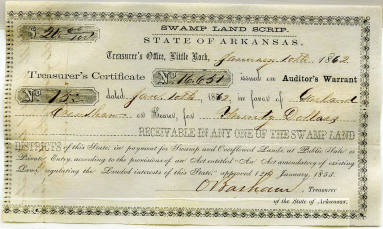 SWAMP LAND SCRIP.
STATE OF ARKANSAS.
Treasurer's Office, Little Rock, January 10th, 1862
Treasurer's Certificate No 16.651 issued on Auditor's Warrant
No 15 dated Jany 10th, 1862, in favor of Garland
Crenshaw or Bearer, for Twenty Dollars
RECEIVABLE IN ANY ONE OF THE SWAMP LAND
DISTRICTS of this State, in payment for Swamp and Overflowed Lands, at Public Sale or
Private Entry, according to the provisions of an Act entitled "An Act amendatory of existing
Laws regulating the Landed interests of this State," approved 12th January, 1853.
O Basham, Treasurer
of the State of Arkansas.